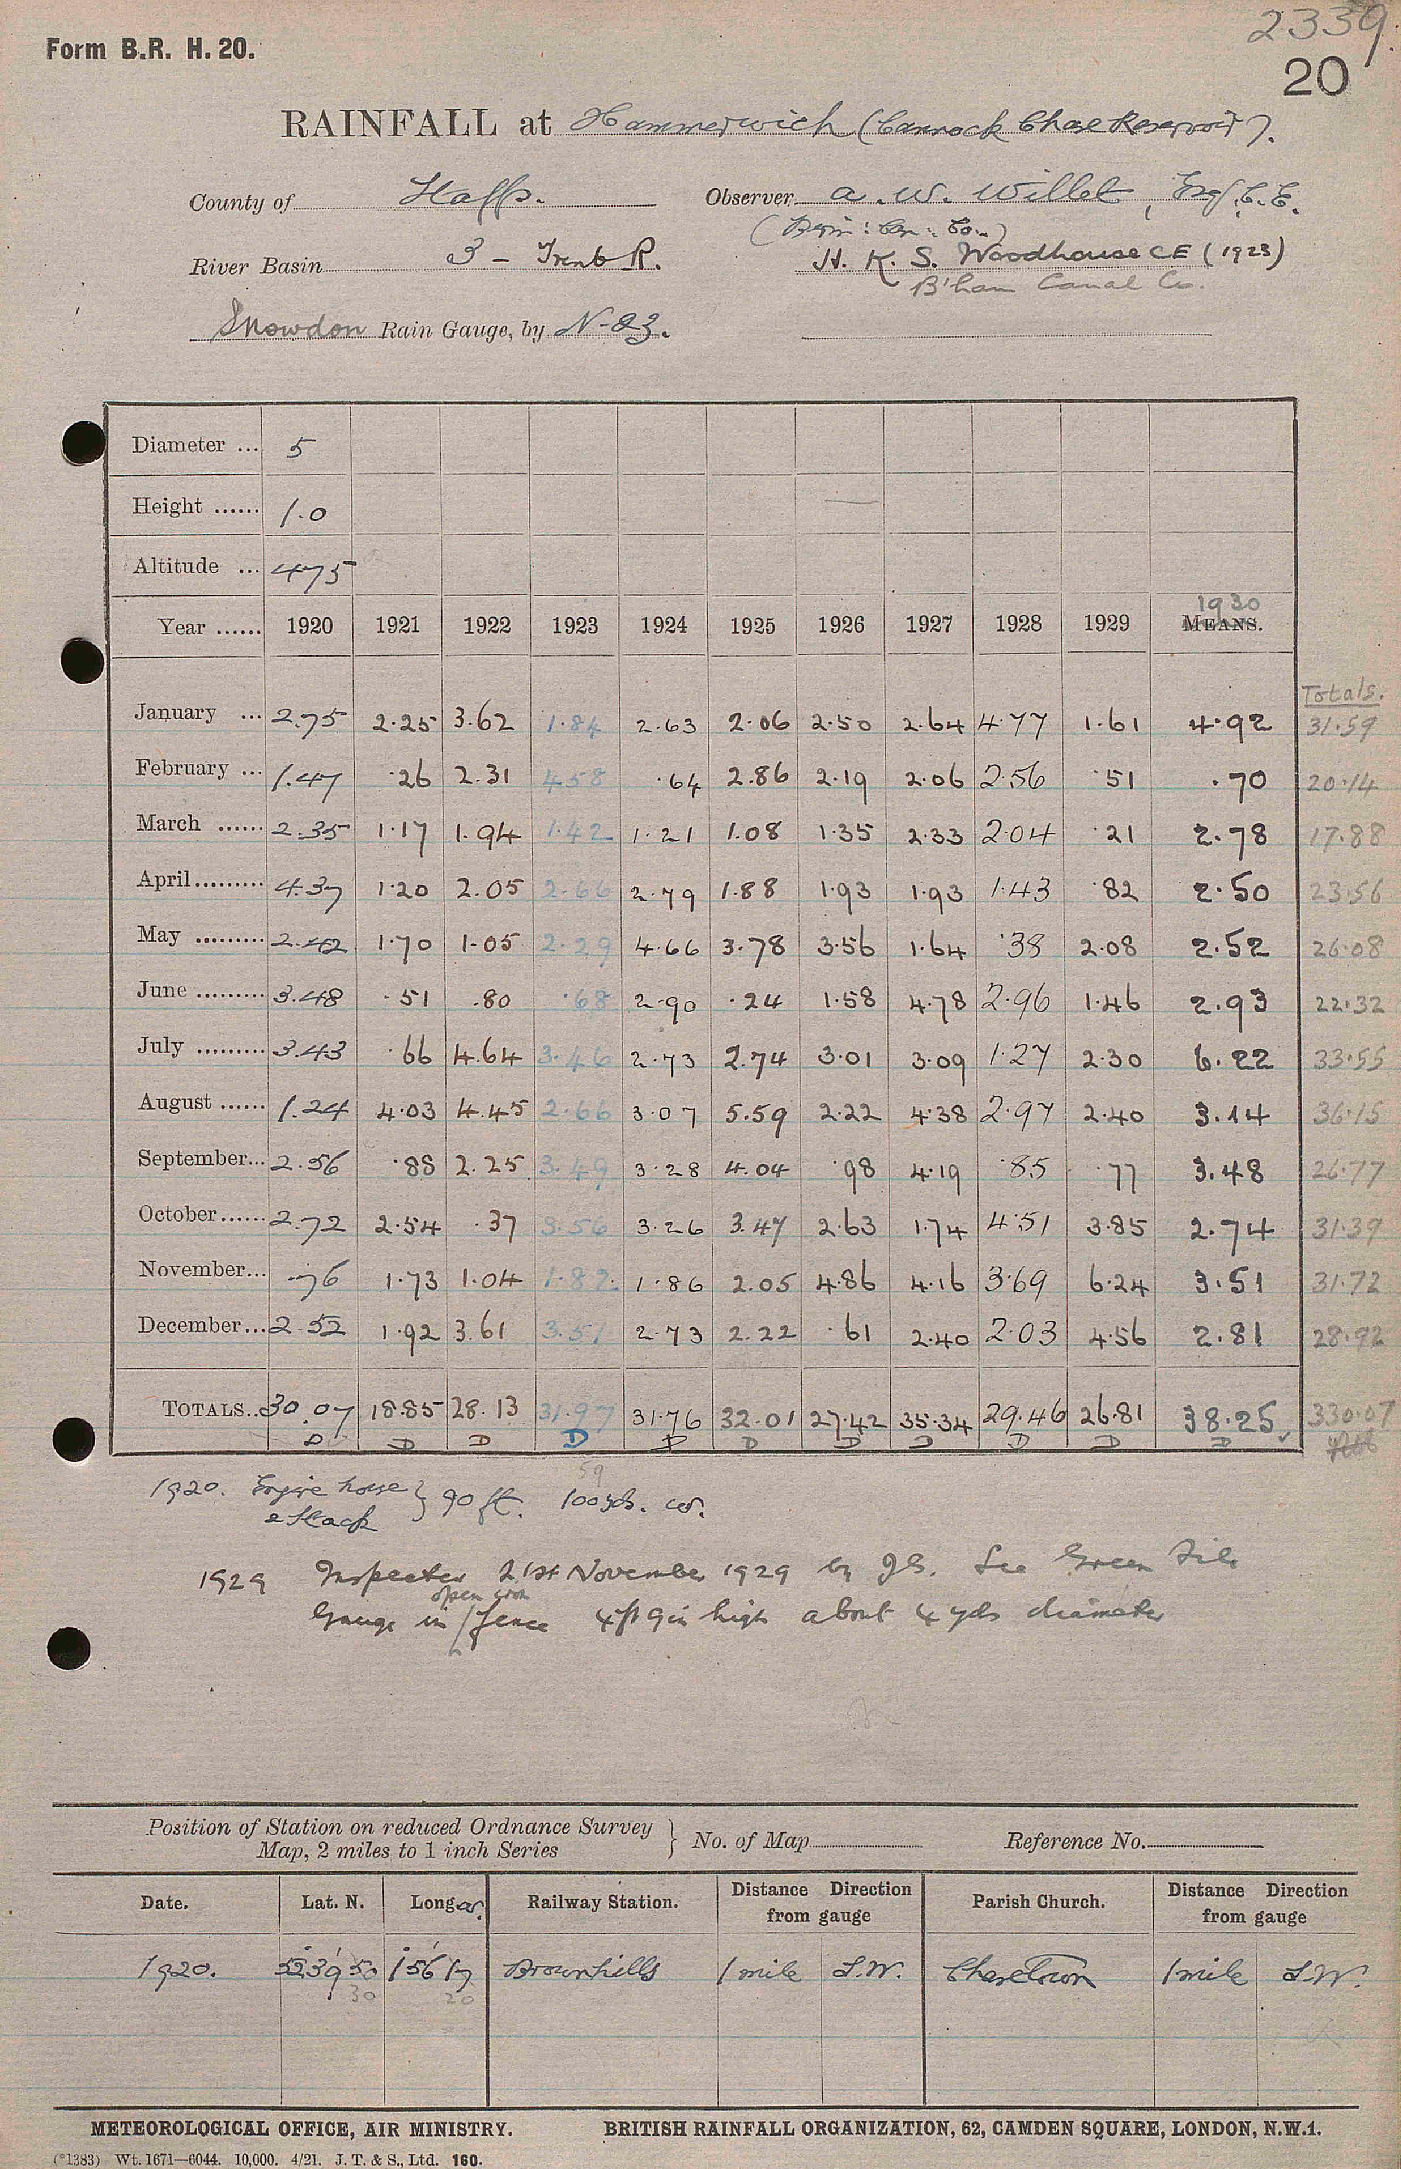 2339.
Form B.R. H. 20.
20
RAINFALL at Hammerwich (Cannock Chase Reservoir).
County of Staffs. Observer A. W. Willet, Esq C.E.
River Basin 3 - Trent R. H. K. S. Woodhouse C E (1923)
B'ham Canal Co.
Snowdon Rain Gauge, by N-&Z.
Diameter ... 5
Height ...... 1.0
Altitude ... 475
1930
Year ...... 1920 1921 1922 1923 1924 1925 1926 1927 1928 1929 MEANS.
Totals.
January ... 2.75 2.25 3.62 1.84 2.63 2.06 2.50 2.64 4.77 1.61 4.92 31.59
February ... 1.47 .26 2.31 4.58 .64 2.86 2.19 2.06 2.56 .51 .70 20.14
March ...... 2.35 1.17 1.94 1.42 1.21 1.08 1.35 2.33 2.04 .21 2.78 17.88
April ......... 4.37 1.20 2.05 2.66 2.79 1.88 1.93 1.93 1.43 .82 2.50 23.56
May ......... 2.42 1.70 1.05 2.29 4.66 3.78 3.56 1.64 .38 2.08 2.52 26.08
June ......... 3.48 .51 .80 .68 2.90 .24 1.58 4.78 2.96 1.46 2.93 22.32
July ......... 3.43 .66 4.64 3.46 2.73 2.74 3.01 3.09 1.27 2.30 6.22 33.55
August ...... 1.24 4.03 4.45 2.66 3.07 5.59 2.22 4.38 2.97 2.40 3.14 36.15
September... 2.56 .88 2.25 3.49 3.28 4.04 .98 4.19 .85 .77 3.48 26.77
October...... 2.72 2.54 .37 3.56 3.26 3.47 2.63 1.74 4.51 3.85 2.74 31.39
November... .76 1.73 1.04 1.82 1.86 2.05 4.86 4.16 3.69 6.24 3.51 31.72
December... 2.52 1.92 3.61 3.51 2.73 2.22 .61 2.40 2.03 4.56 2.81 28.92
TOTALS... 30.07 18.85 28.13 31.97 31.76 32.01 27.42 35.34 29.46 26.81 38.25 330.07
D D D D D D D D D D D
59
1920. Engine house } 90 ft. 100 yds. W.
& Stack
1929 Inspected 21st November 1929 by See Green File
open iron
Gauge in / fence 4 ft 9 in high about 4 yds diameter
Position of Station on reduced Ordnance Survey } No. of Map Reference No.
Map, 2 miles to 1 inch Series
Date. Lat. N. Long W. Railway Station. Distance Direction from gauge Parish Church. Distance Direction from gauge
1920. 52° 39' 50 1° 56' 17 Brownhills 1 mile S.W. Chasetown 1 mile S.W.
30 20
METEOROLOGICAL OFFICE, AIR MINISTRY. BRITISH RAINFALL ORGANIZATION, 62, CAMDEN SQUARE, LONDON, N.W.1.
(*1383) Wt. 1671—6044. 10,000. 4/21. J. T. & S., Ltd. 160.